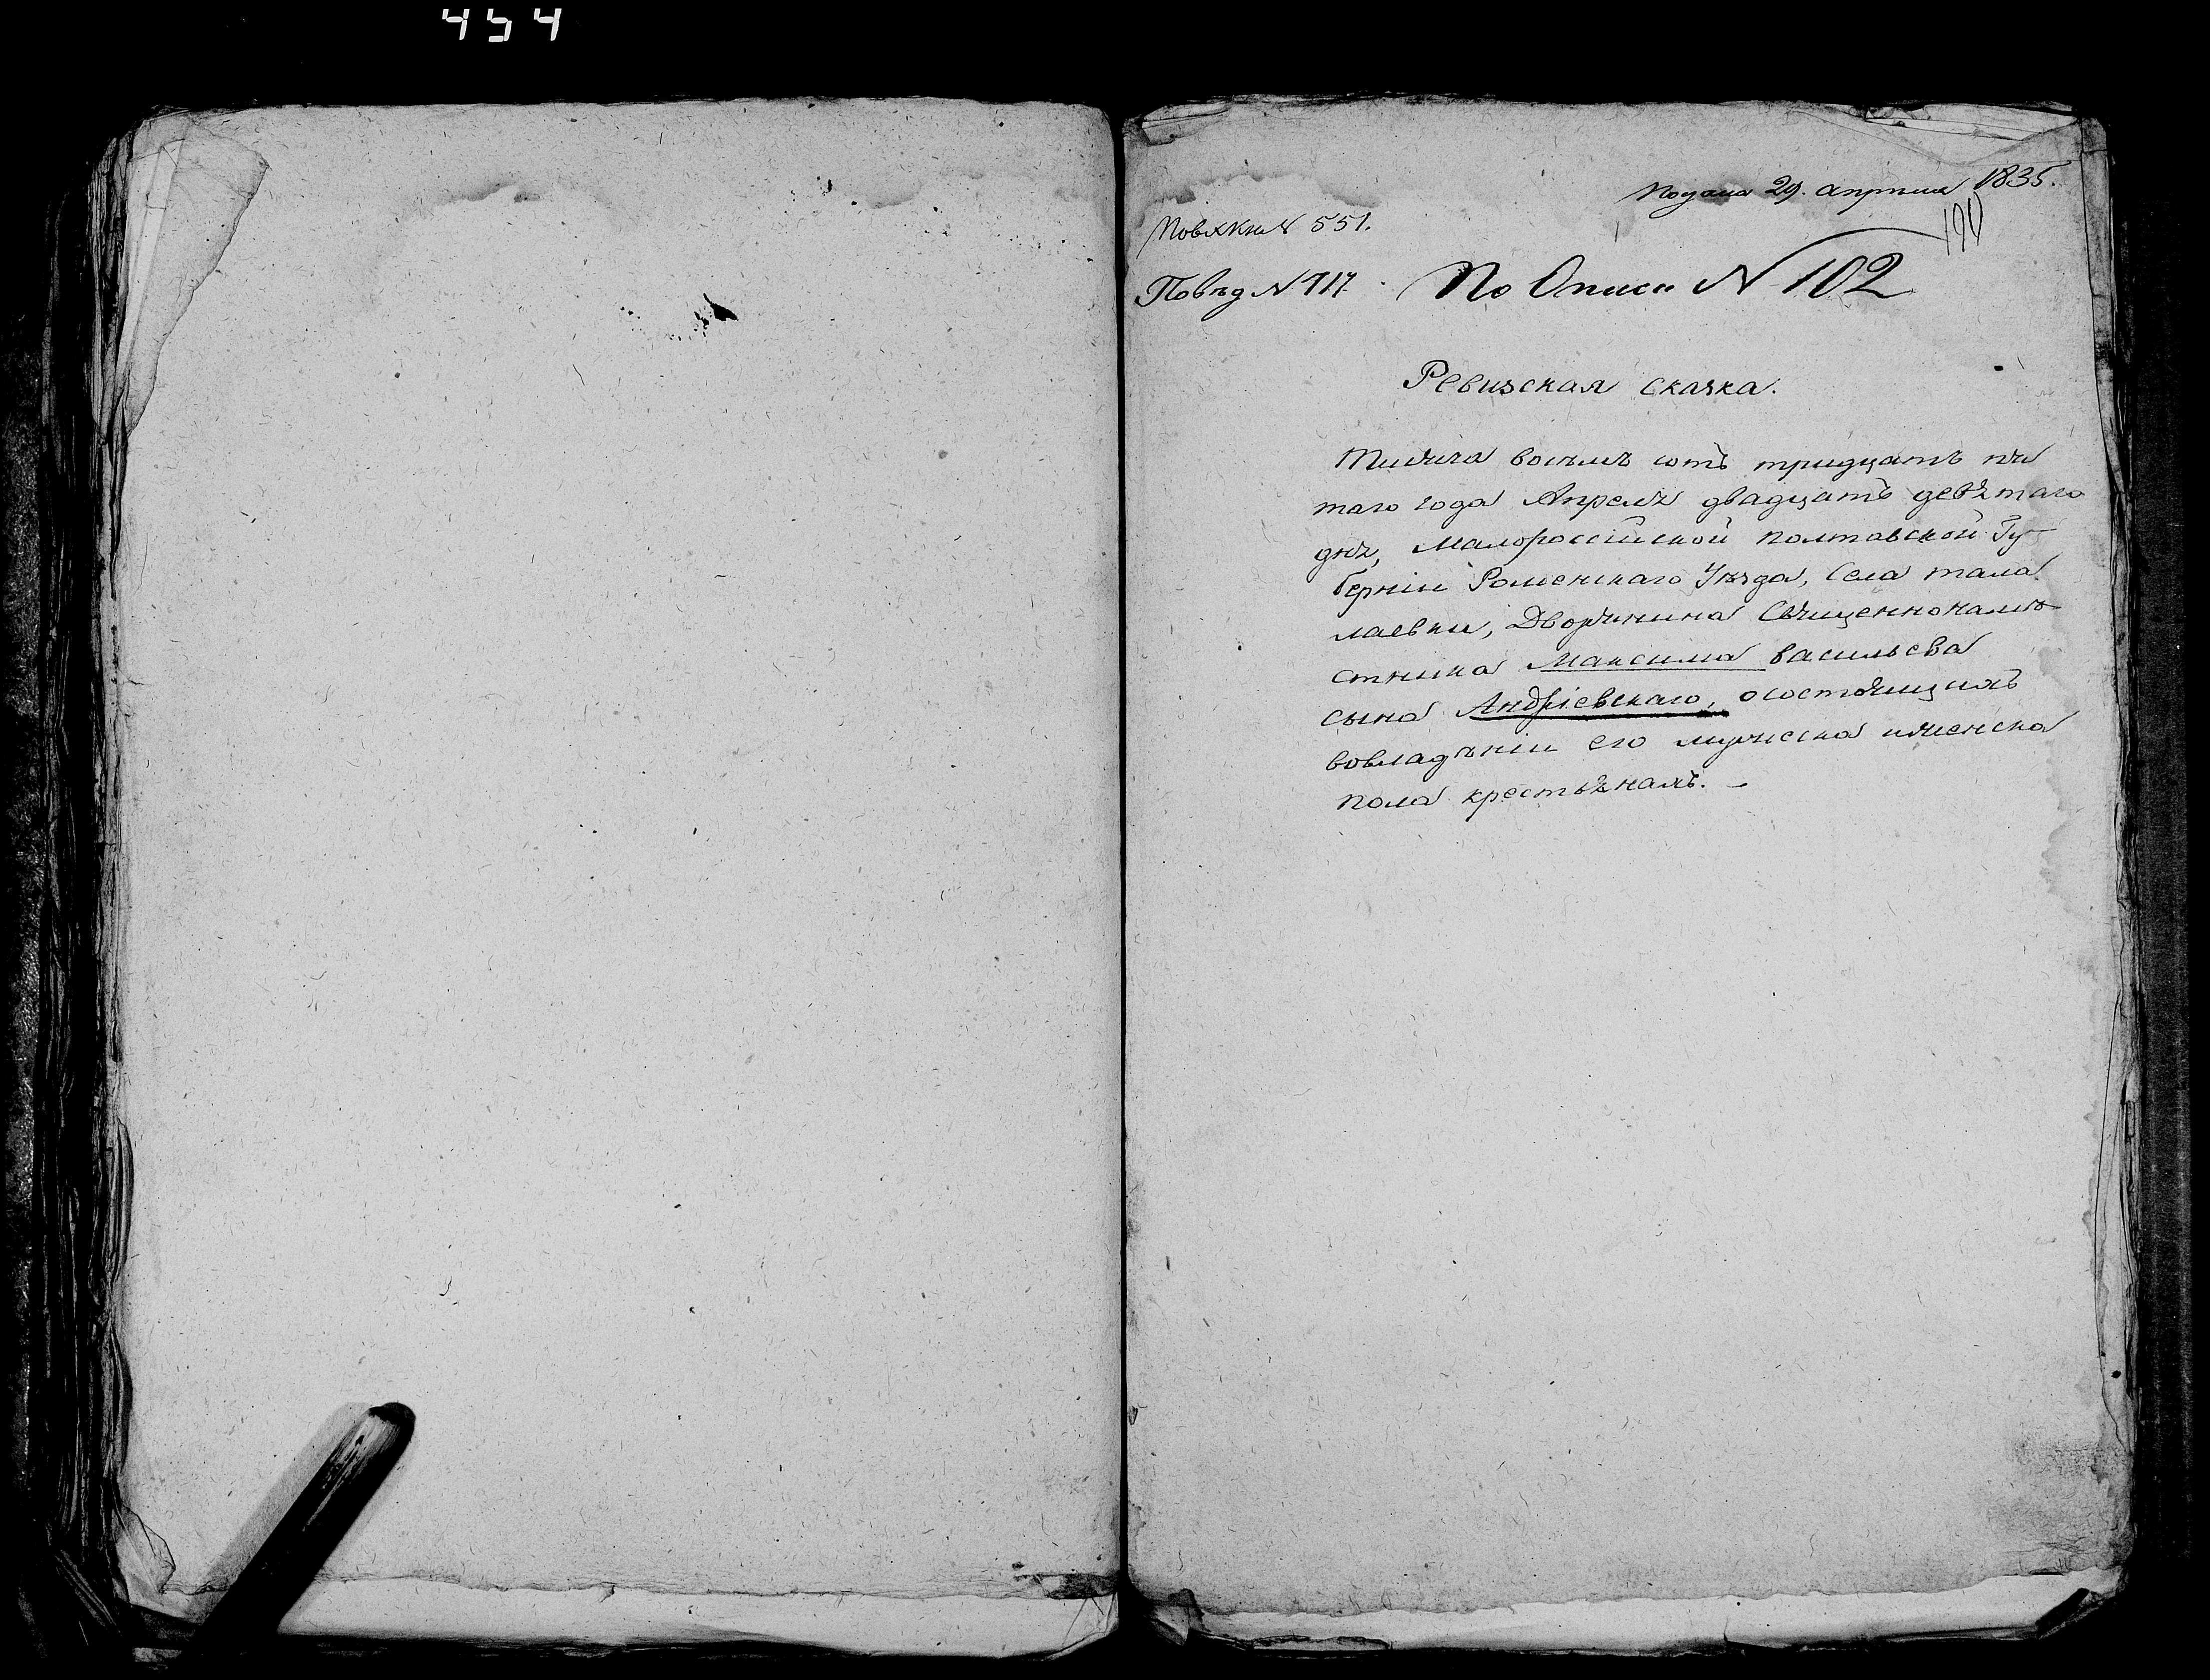 454
Подана 29. апреля 1835.
190
Повх Кн N 551.
Повѣд N 717.
По Описи N 102
Ревизская сказка.
Тисяча восемъ сотъ тридцать пя
таго года Апреля двадцать девятаго
дня, Малороссійской Полтавской Гу-
берніи Роменскаго Уѣзда, Села тала
лаевки, Дворянина Священнонамѣ
стника Максима васильева
сына Андріевскаго, осостоящихъ
вовладѣніи его мужеска иженска
пола крестьянахъ. -